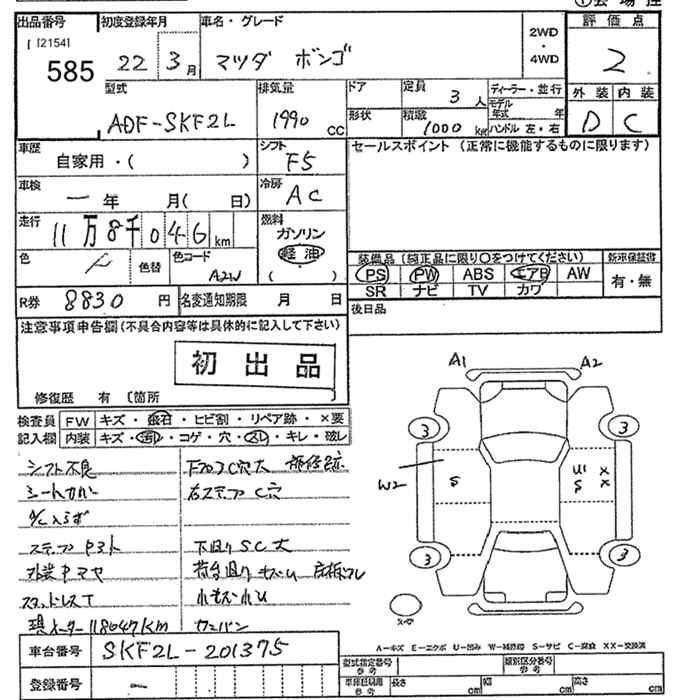 ①会場控
出品番号 初度登録年月 車名・グレード 2WD・4WD 評価点
[12154]
585 22 3月 マツダ ボンゴ 2
型式 排気量 ドア 定員 3人 ディーラー・並行 外装 内装
ADF-SKF2L 1990 CC 形状 積載 1000 kg モデル年式 年 ハンドル 左・右 D C
車歴 自家用・( ) シフト F5 セールスポイント (正常に機能するものに限ります)
車検 一 年 月( 日) 冷房 AC
走行 11万8千046km 燃料 ガソリン 軽油 ( )
色 色替 色コード A2W 装備品 (純正品に限り○をつけてください) 新車保証書
PS PW ABS エアB AW 有・無
SR ナビ TV カワ
R券 8830円 名変通知期限 月 日 後日品
注意事項申告欄(不具合内容等は具体的に記入して下さい)
初出品
修復歴 有 〔箇所
検査員記入欄 FW キズ・飛石・ヒビ割・リペア跡・×要
内装 キズ・汚れ・コゲ・穴・スレ・キレ・破レ
A1 A2
3 3
W2 S U1 S XX
3 3
シフト不良
シートカバー
右ステップC穴
下回りSC大
スタッドレスT
現メーター118047km
車台番号 SKF2L-201375
登録番号 ー
A-キズ E-エクボ U-凹み W-補修跡 S-サビ C-腐食 XX-交換済
型式指定番号 参考 類別区分番号 参考
車体巨易用 参考 長さ cm 幅 cm 高さ cm